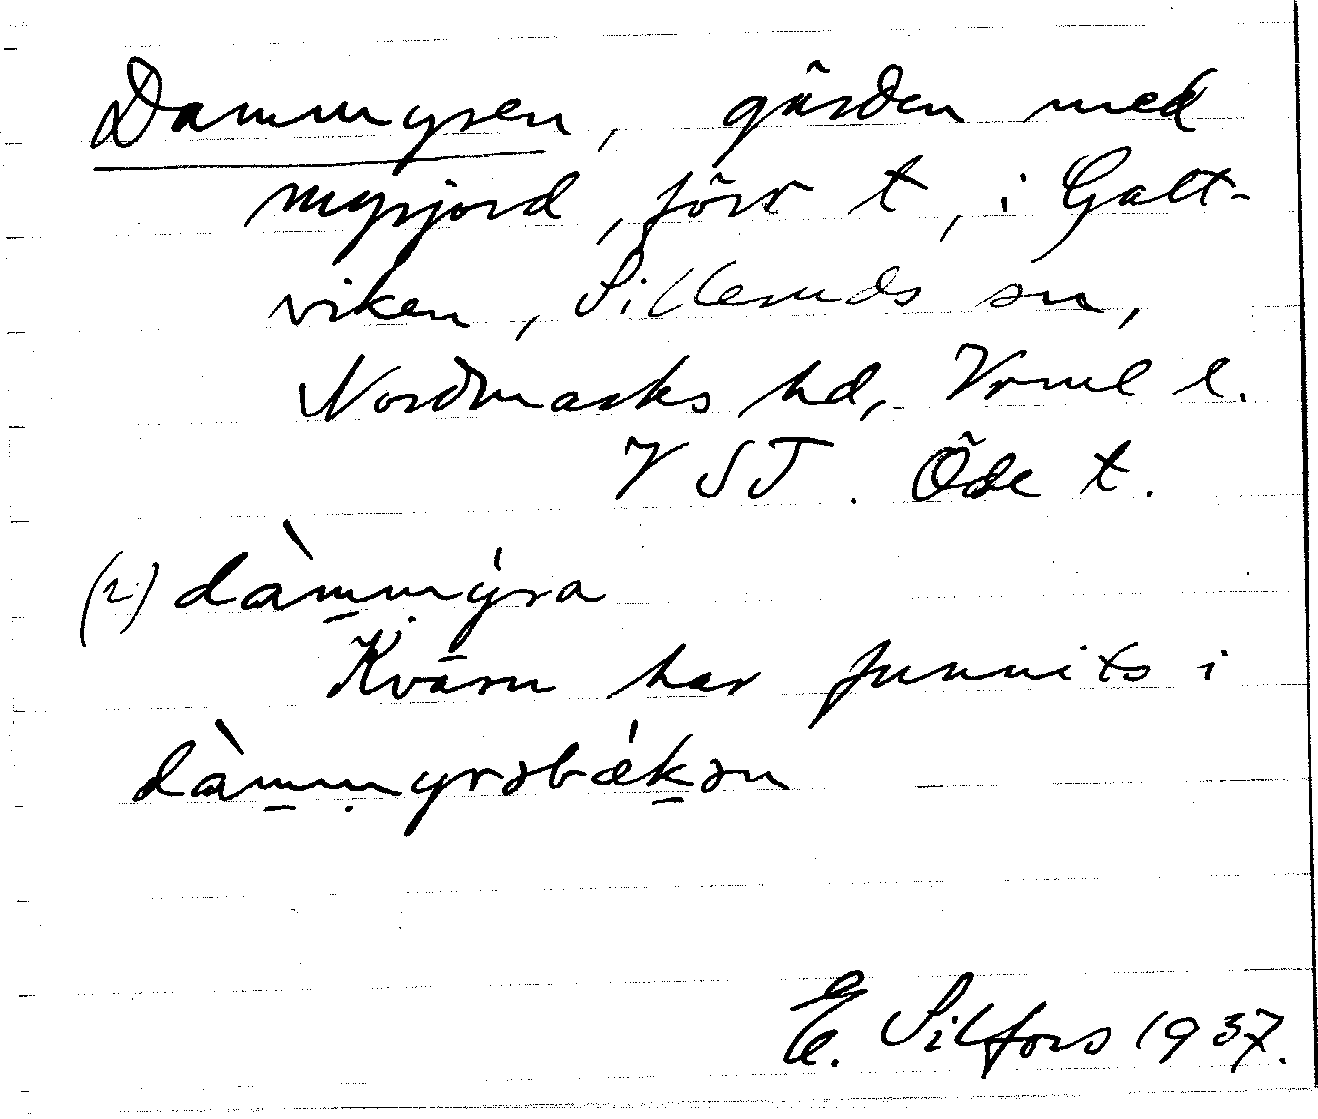 Dammyren, gärden med
myrjord, förr t, i Galt-
viken, Silleruds sn,
Nordmarks hd, Vrml l.
VST. Öde t.
(2) dàmmy̍ra
Kvarn har funnits i
dàmmyrəbækən
E. Silfors 1937.